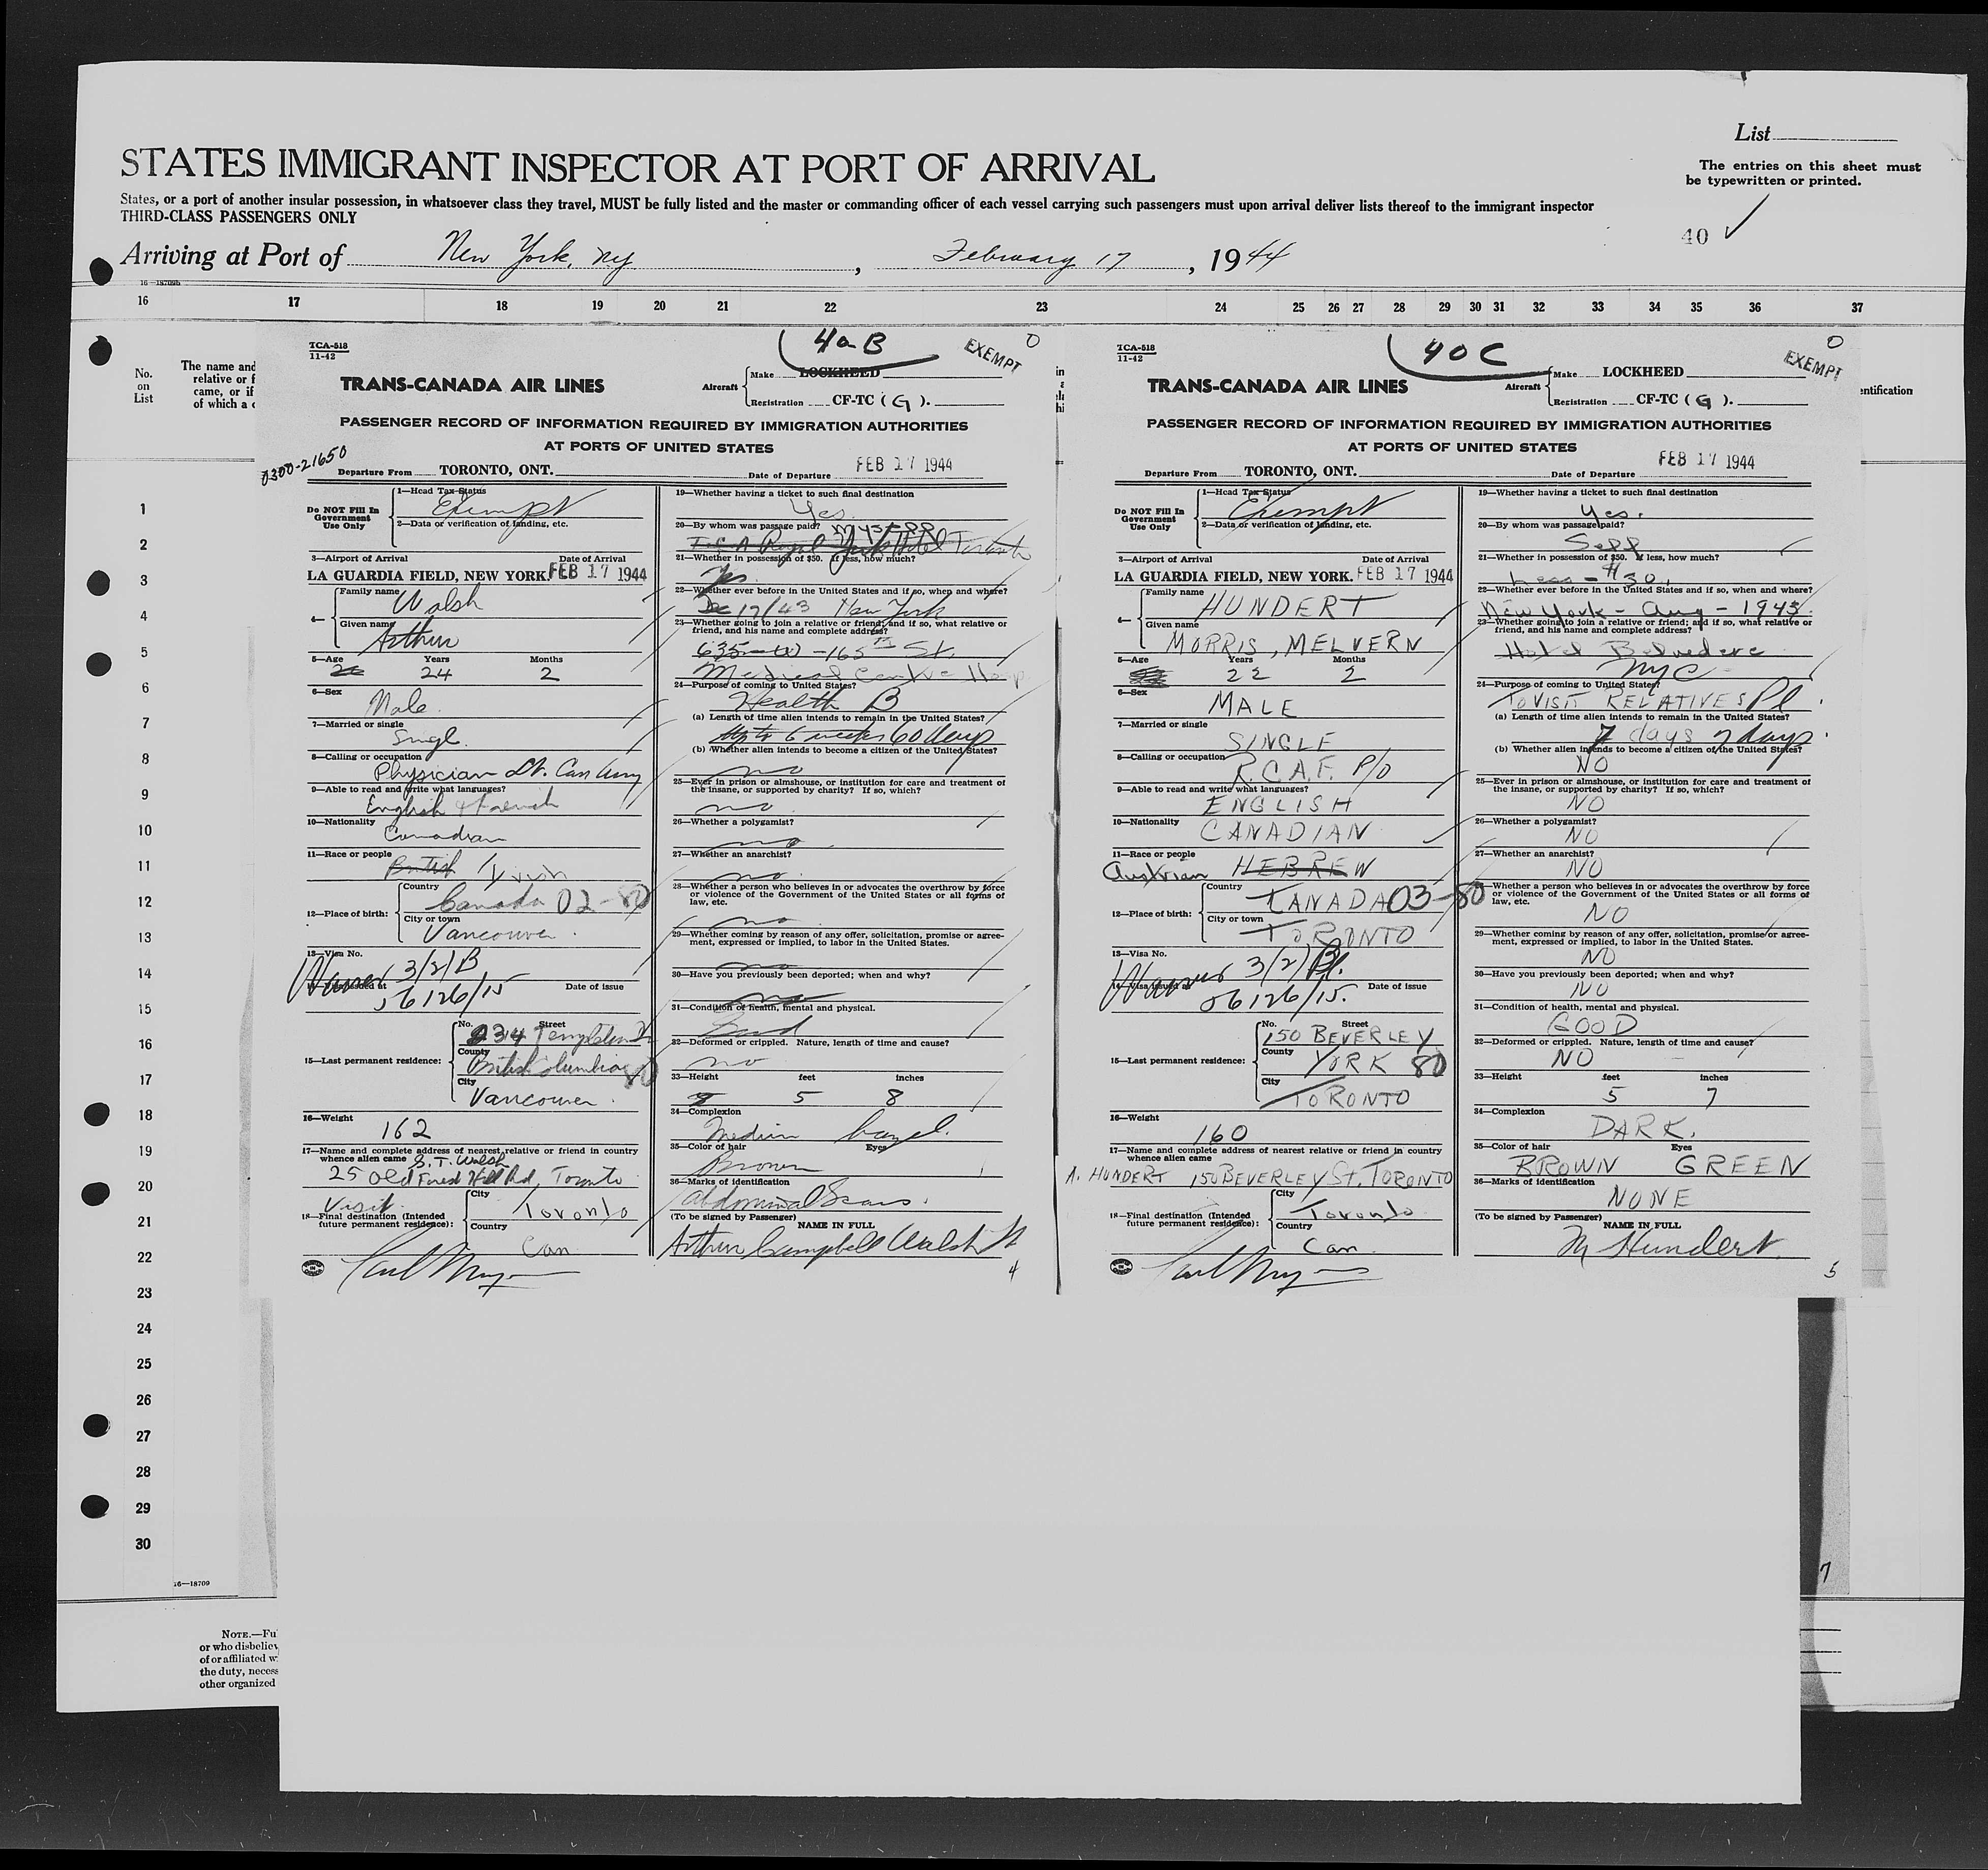 List
STATES IMMIGRANT INSPECTOR AT PORT OF ARRIVAL
The entries on this sheet must
be typewritten or printed.
States, or a port of another insular possession, in whatsoever class they travel, MUST be fully listed and the master or commanding officer of each vessel carrying such passengers must upon arrival deliver lists thereof to the immigrant inspector
THIRD-CLASS PASSENGERS ONLY
40 ✓
Arriving at Port of New York, NY, February 17, 1944
16 17 18 19 20 21 22 23 24 25 26 27 28 29 30 31 32 33 34 35 36 37
No.
on
List
The name and
relative or f
came, or if
of which a c
entification
TCA-518
11-42
40 B
EXEMPT
0
TRANS-CANADA AIR LINES
Aircraft
Make LOCKHEED
Registration CF-TC ( G ).
PASSENGER RECORD OF INFORMATION REQUIRED BY IMMIGRATION AUTHORITIES
AT PORTS OF UNITED STATES
0300-21650
Departure From TORONTO, ONT. Date of Departure FEB 17 1944
Do NOT Fill In
Government
Use Only
1—Head Tax Status
Exempt
2—Data or verification of landing, etc.
3—Airport of Arrival Date of Arrival
LA GUARDIA FIELD, NEW YORK. FEB 17 1944
4— Family name Walsh
Given name Arthur
5—Age Years Months
24 2
6—Sex
Male
7—Married or single
Single
8—Calling or occupation
Physician Lt. Can Army
9—Able to read and write what languages?
English & French
10—Nationality
Canadian
11—Race or people
British Irish
12—Place of birth: Country Canada 02-80
City or town
Vancouver
13—Visa No.
3/2/B
14—Visa issued at Date of issue
56126/15
15—Last permanent residence: No. Street
234 Templeton Dr
County
British Columbia 80
City
Vancouver
16—Weight
162
17—Name and complete address of nearest relative or friend in country
whence alien came
25 Old Forest Hill Rd, Toronto
Visit
18—Final destination (Intended
future permanent residence):
City
Toronto
Country
Can
19—Whether having a ticket to such final destination
Yes
20—By whom was passage paid? Myself
T.C.A Royal York Hotel Toronto
21—Whether in possession of $50. If less, how much?
Yes
22—Whether ever before in the United States and if so, when and where?
Dec 17/43 New York
23—Whether going to join a relative or friend; and if so, what relative or
friend, and his name and complete address?
635 - W - 165th St.
Medical Centre Hosp
24—Purpose of coming to United States?
Health B
(a) Length of time alien intends to remain in the United States?
Up to 6 weeks 60 days
(b) Whether alien intends to become a citizen of the United States?
no
25—Ever in prison or almshouse, or institution for care and treatment of
the insane, or supported by charity? If so, which?
no
26—Whether a polygamist?
no
27—Whether an anarchist?
no
28—Whether a person who believes in or advocates the overthrow by force
or violence of the Government of the United States or all forms of
law, etc.
no
29—Whether coming by reason of any offer, solicitation, promise or agree-
ment, expressed or implied, to labor in the United States.
no
30—Have you previously been deported; when and why?
no
31—Condition of health, mental and physical.
Good
32—Deformed or crippled. Nature, length of time and cause?
no
33—Height feet inches
5 8
34—Complexion
Medium hazel.
35—Color of hair Eyes
Brown
36—Marks of identification
abdominal Scars.
(To be signed by Passenger) NAME IN FULL
Arthur Campbell Walsh Lt
4
TCA-518
11-42
40 C
EXEMPT
0
TRANS-CANADA AIR LINES
Aircraft
Make LOCKHEED
Registration CF-TC ( G ).
PASSENGER RECORD OF INFORMATION REQUIRED BY IMMIGRATION AUTHORITIES
AT PORTS OF UNITED STATES
Departure From TORONTO, ONT. Date of Departure FEB 17 1944
Do NOT Fill In
Government
Use Only
1—Head Tax Status
Exempt
2—Data or verification of landing, etc.
3—Airport of Arrival Date of Arrival
LA GUARDIA FIELD, NEW YORK. FEB 17 1944
4— Family name HUNDERT
Given name
MORRIS, MELVERN
5—Age Years Months
22 2
6—Sex
MALE
7—Married or single
SINGLE
8—Calling or occupation
R.C.A.F. P/O
9—Able to read and write what languages?
ENGLISH
10—Nationality
CANADIAN
11—Race or people
Austrian HEBREW
12—Place of birth: Country CANADA 03-80
City or town
TORONTO
13—Visa No.
3/2/Pl.
14—Visa issued at Date of issue
56126/15.
15—Last permanent residence: No. Street
150 BEVERLEY
County
YORK 80
City
TORONTO
16—Weight
160
17—Name and complete address of nearest relative or friend in country
whence alien came
A. HUNDERT 150 BEVERLEY ST. TORONTO
18—Final destination (Intended
future permanent residence):
City
Toronto
Country
Can.
19—Whether having a ticket to such final destination
Yes.
20—By whom was passage paid?
Self
21—Whether in possession of $50. If less, how much?
Less - $30.
22—Whether ever before in the United States and if so, when and where?
New York - Aug - 1943.
23—Whether going to join a relative or friend; and if so, what relative or
friend, and his name and complete address?
Hotel Belvedere
NYC
24—Purpose of coming to United States?
TO VISIT RELATIVES Pl
(a) Length of time alien intends to remain in the United States?
7 days 7 days
(b) Whether alien intends to become a citizen of the United States?
NO
25—Ever in prison or almshouse, or institution for care and treatment of
the insane, or supported by charity? If so, which?
NO
26—Whether a polygamist?
NO
27—Whether an anarchist?
NO
28—Whether a person who believes in or advocates the overthrow by force
or violence of the Government of the United States or all forms of
law, etc.
NO
29—Whether coming by reason of any offer, solicitation, promise or agree-
ment, expressed or implied, to labor in the United States.
NO
30—Have you previously been deported; when and why?
NO
31—Condition of health, mental and physical.
GOOD
32—Deformed or crippled. Nature, length of time and cause?
NO
33—Height feet inches
5 7
34—Complexion
DARK.
35—Color of hair Eyes
BROWN GREEN
36—Marks of identification
NONE
(To be signed by Passenger) NAME IN FULL
M Hundert
5
1
2
3
4
5
6
7
8
9
10
11
12
13
14
15
16
17
18
19
20
21
22
23
24
25
26
27
28
29
30
7
16—18709
NOTE.—Fu
or who disbeliev
of or affiliated w
the duty, necess
other organized